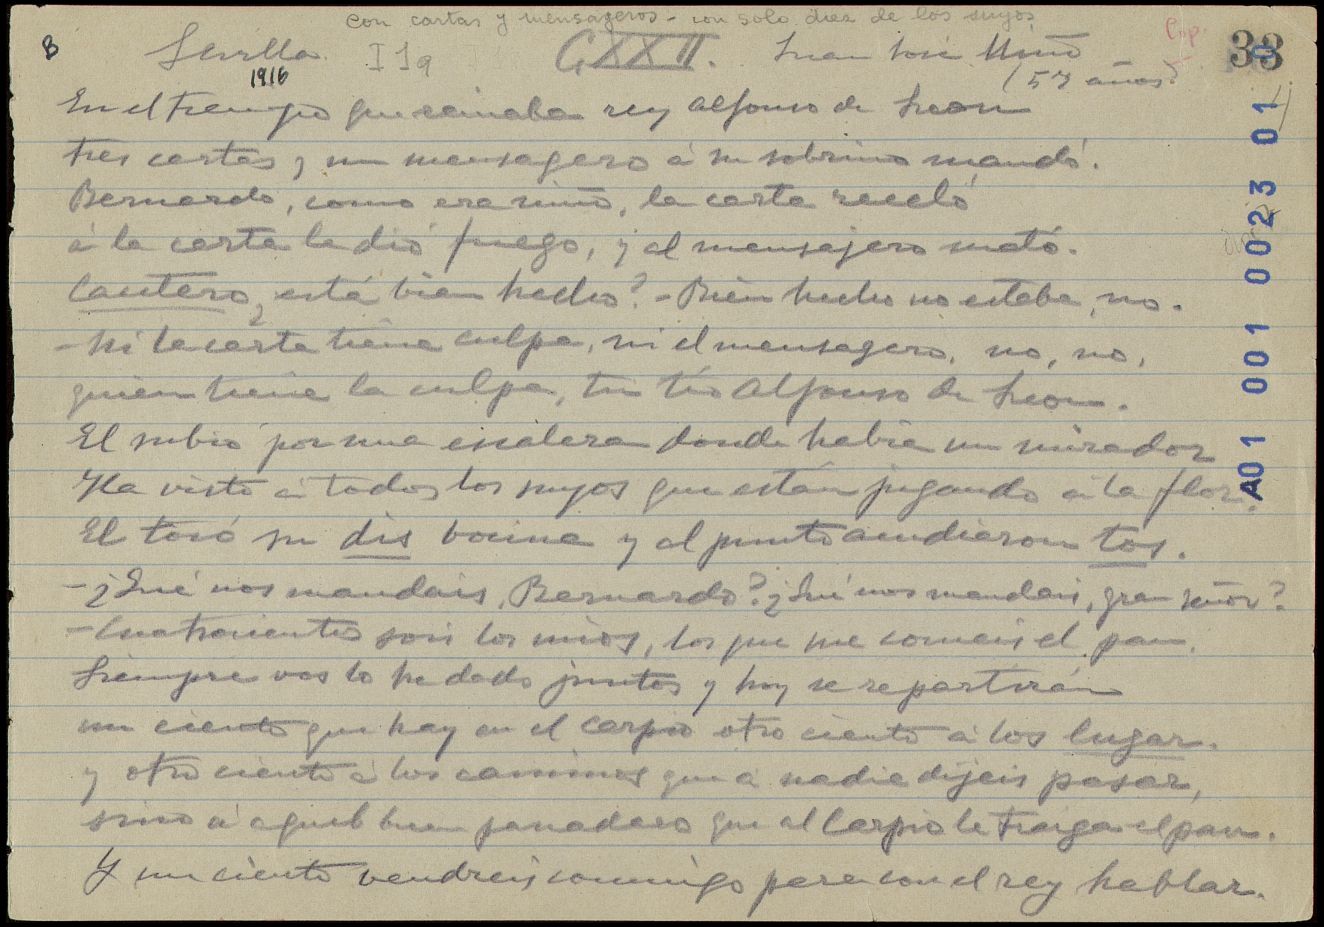 con cartas y mensageros - con solo diez de los suyos
B Sevilla I 1 a CXXII. Juan José Niño Cop. 33
1916 (57 años)
En el tiempo que reinaba rey Alfonso de Leon
tres cartas y un mensagero á su sobrino mandó.
Bernardo, como era niño, la carta receló
á la carta le dió fuego, y al mensajero mató.
Cautero, está bien hecho? - Bien hecho no estaba, no.
- Ni la carta tiene culpa, ni el mensagero, no, no,
quien tiene la culpa, tu tio Alfonso de Leon.
El subió por una escalera donde habia un mirador
Ha visto á todos los suyos que están jugando á la flor.
El tocó su dis bocina y al punto acudieron tos.
- ¿Qué nos mandais, Bernardo? ¿Qué nos mandais, gran señor?
- Cuatrocientos sois los mios, los que me comeis el pan.
Siempre vos lo he dado juntos y hoy se repartirán
un ciento que hay en el Carpio otro ciento á los lugar.
y otro ciento á los caminos que á nadie dijeis pasar,
sino á aquel buen panadero que al Carpio le traiga el pan.
Y un ciento vendreis conmigo para con el rey hablar.
A01 001 0023 01